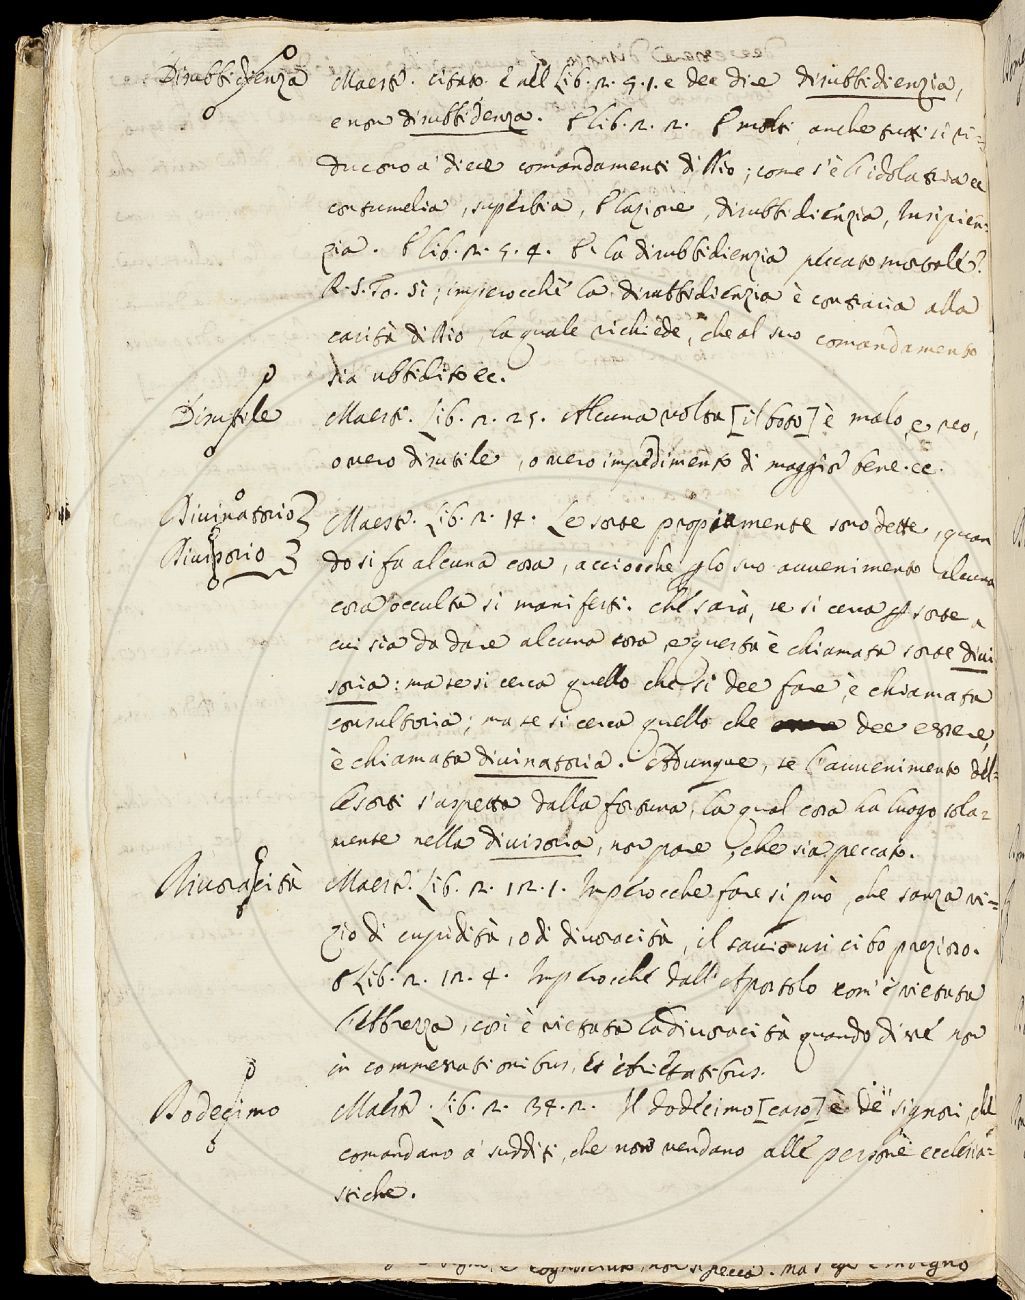 Disubbidienza Maest. citato è all Lib. 2. 9. 1. e dee dire disubbidienzia,
e non disubbidenza. E lib. 2. 2. E molti anche tutti si ri=
ducono a' diece comandamenti di Dio; come s'è l'idolatria ec
contumelia, superbia, Elazione, disubbidienzia, Insipien=
zia. E lib. 2. 9. 4. E la disubbidienzia peccato mortale?
R. S. To. sì; imperocchè la disubbidienzia è contraria alla
carità di Dio, la quale richiede, che al suo comandamento
sia ubbidito ec.
Disutile Maest. Lib. 2. 25. Alcuna volta [il boto] è malo, e reo,
overo disutile, overo impedimento di maggior bene. ec.
Divinatorio Maest. Lib. 2. 14. Le sorte propiamente sono dette, quan
Divisorio do si fa alcuna cosa, acciocche p lo suo avvenimento alcuna
cosa occulta si manifesti. Chè sarà, se si cerca p sorte a
cui sia da dare alcuna cosa, e questa è chiamata sorte divi
soria: ma se si cerca quello che si dee fare, è chiamata
consultoria; ma se si cerca quello che dee essere,
è chiamata divinatoria. Adunque, se l'avvenimento del=
le sorti s'aspetta dalla fortuna, la qual cosa ha luogo sola=
mente nella divisoria, non pare, che sia peccato.
Divoracità Maest. Lib. 2. 12. 1. Imperocche fare si può, che sanza vi=
zio di cupidità, o di divoracità, il savio usi cibo prezioso.
E Lib. 2. 12. 4. Imperocchè dall'Apostolo com'è vietata
l'ebbrezza, così è vietata la divoracità quando disse non
in commessationibus, et ebrietatibus.
Dodecimo Maest. Lib. 2. 34. 2. Il dodecimo [caso] è de' signori, che
comandano a' sudditi, che non vendano alle persone ecclesia=
stiche.